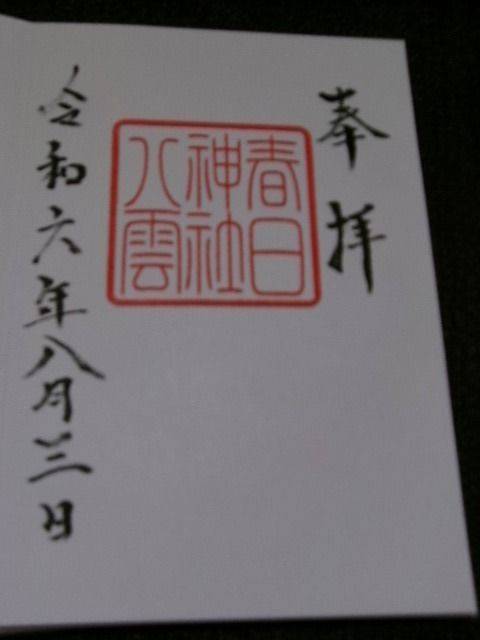 奉拝
春日
神社
八雲
令和六年八月三日